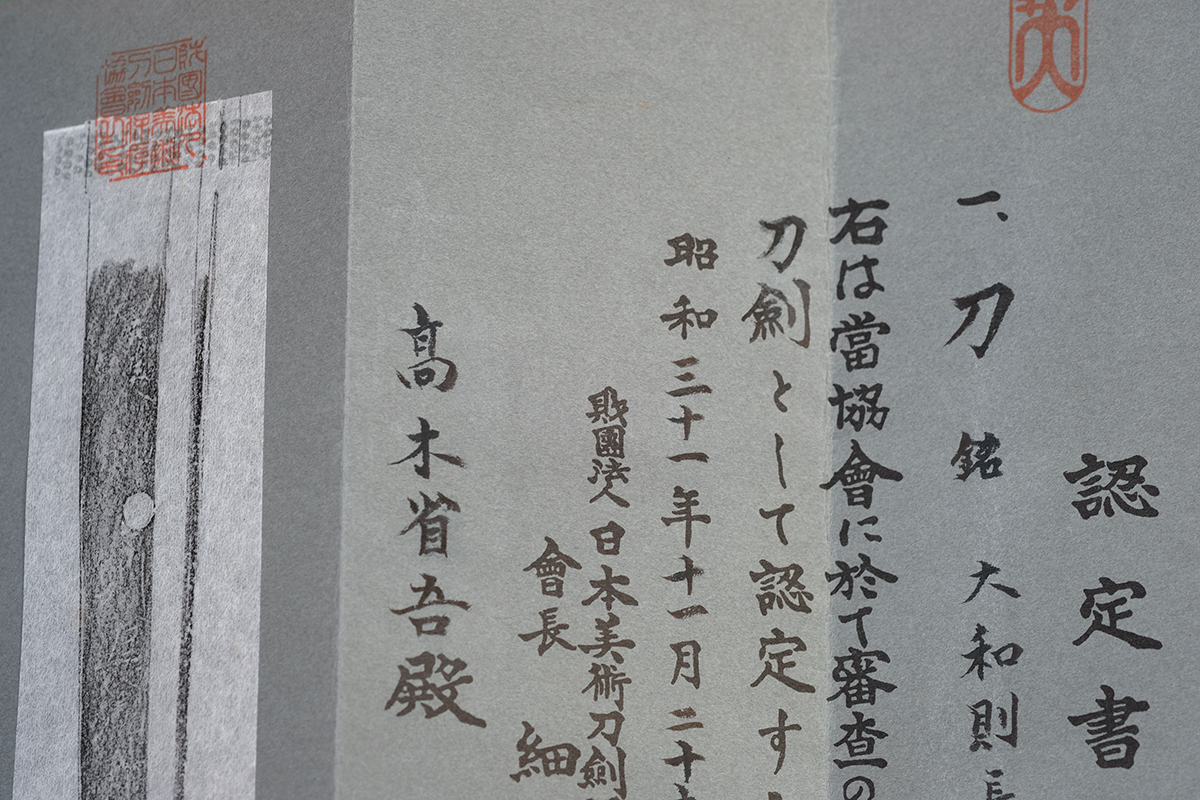 認定書
一、刀 銘 大和則長
右は當協會に於て審査の
刀劍として認定す
昭和三十一年十一月二十
財團法人日本美術刀劍
會長 細
髙木省吾殿